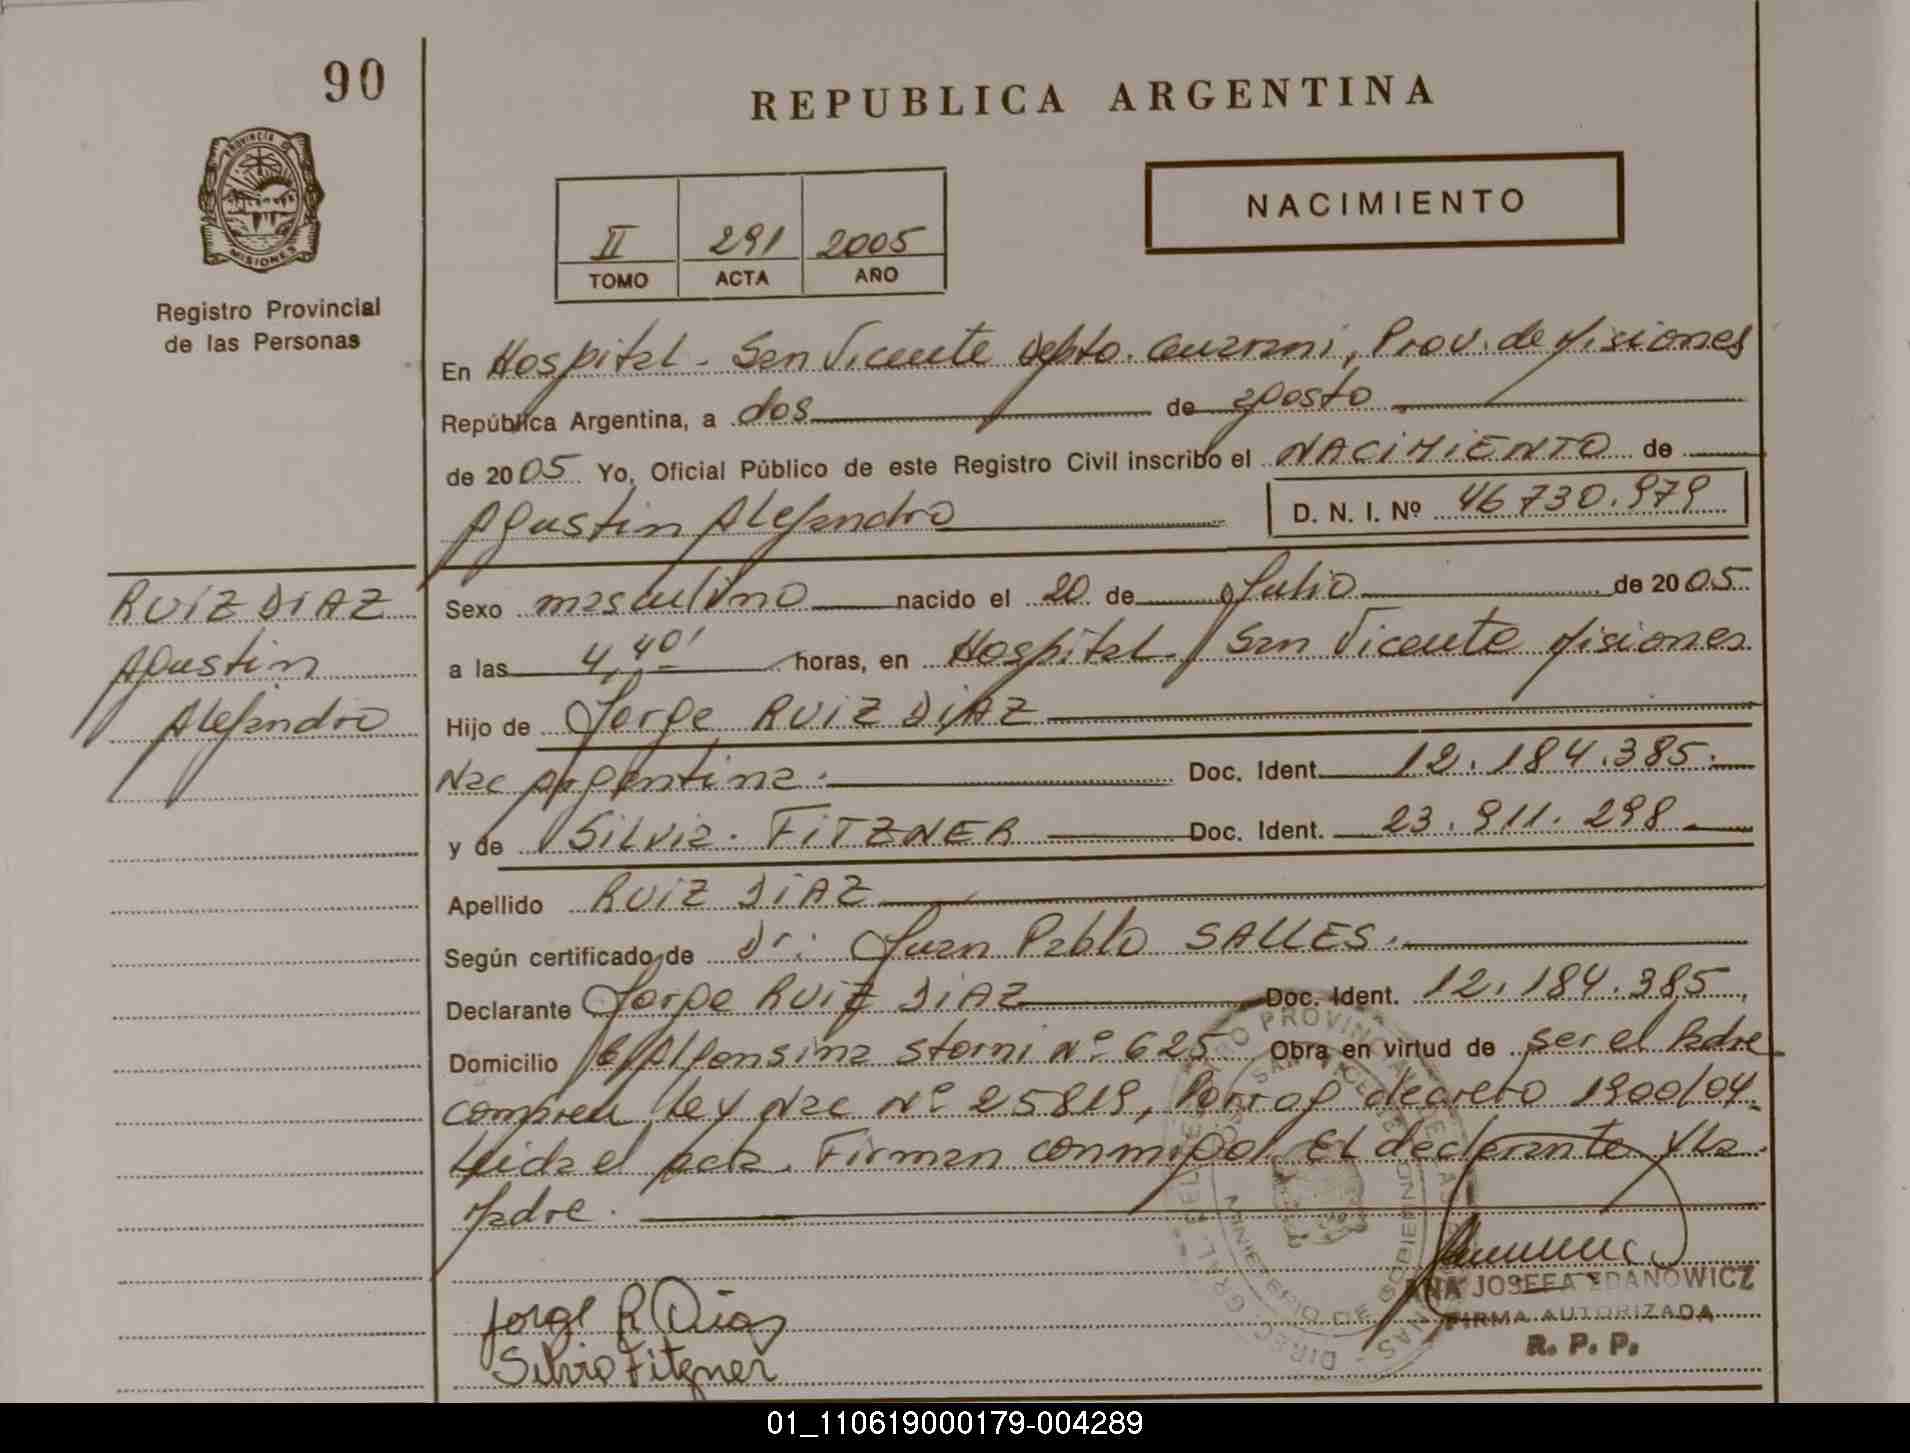 90
REPUBLICA ARGENTINA
PROVINCIA DE
MISIONES
Registro Provincial
de las Personas
NACIMIENTO
II 291 2005
TOMO ACTA AÑO
En Hospital - San Vicente Dpto. Guarani, Prov. de Misiones
República Argentina, a dos de agosto
de 2005 Yo, Oficial Público de este Registro Civil inscribo el NACIMIENTO de
Agustin Alejandro D. N. I. Nº 46730.979
RUIZ DIAZ
Agustin
Alejandro
Sexo masculino nacido el 20 de Julio de 2005
a las 4,40' horas, en Hospital San Vicente Misiones
Hijo de Jorge RUIZ DIAZ
Nac argentina. Doc. Ident. 12.184.385.
y de Silvia. FITZNER Doc. Ident. 23.911.298
Apellido RUIZ DIAZ
Según certificado de Dr: Juan Pablo SALLES.
Declarante Jorge RUIZ DIAZ Doc. Ident. 12.184.385
Domicilio Alfonsina Storni Nº 625 Obra en virtud de ser el Padre
Ley Nac Nº 25819, decreto 1900/04
Leida el acta. Firman conmigo El declarante y La
Madre.
Jorge R Diaz
Silvia Fitzner
ANA JOSEFA ZDANOWICZ
FIRMA AUTORIZADA
R. P. P.
01_110619000179-004289